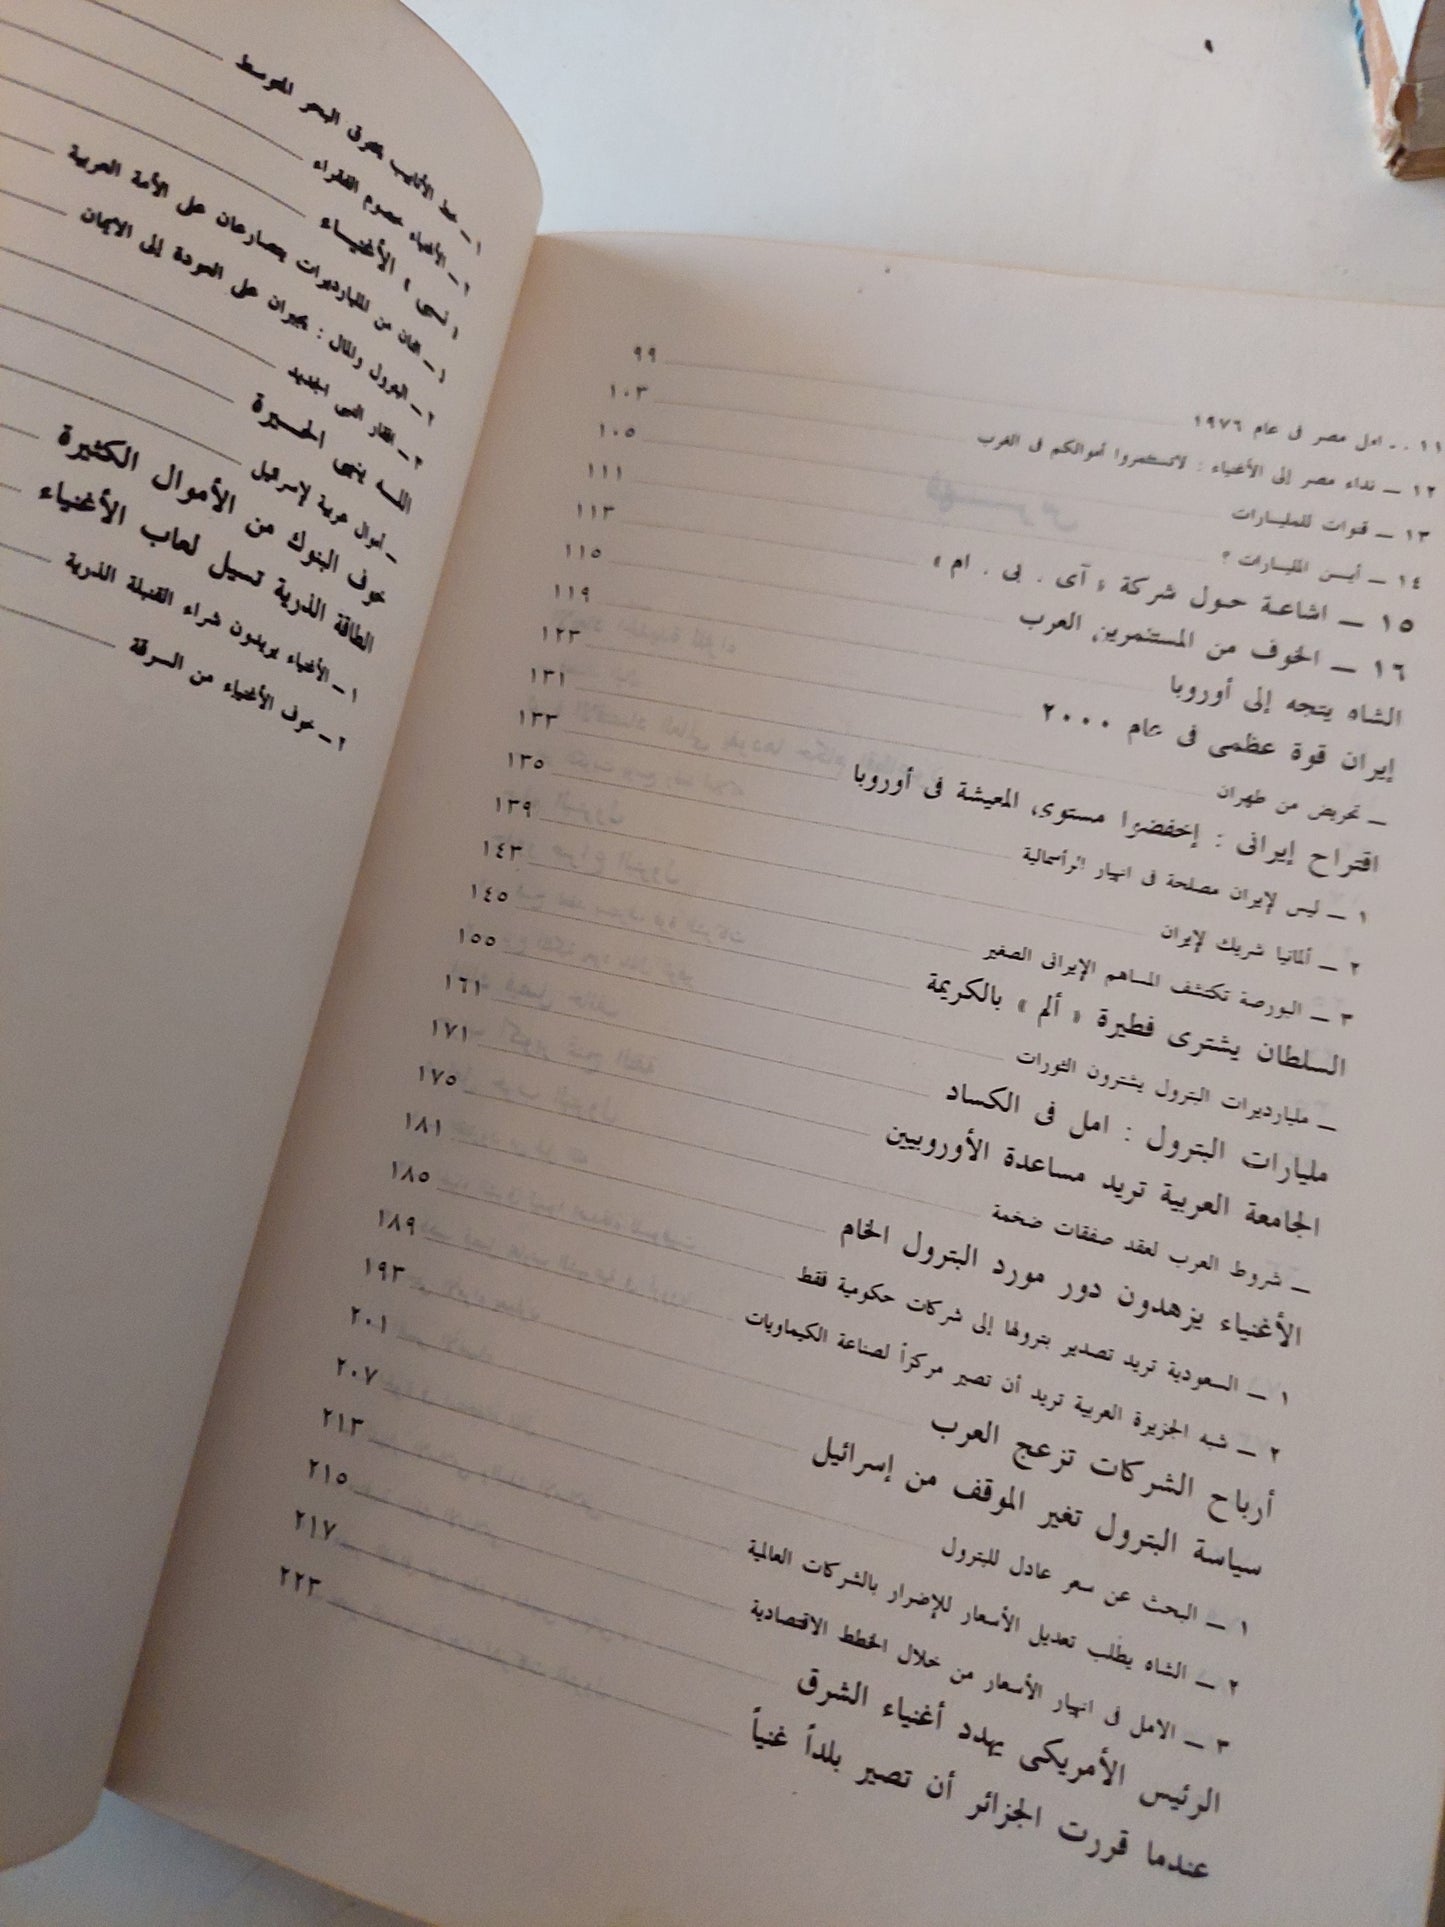 ١١ ـ امل مصر فى عام ١٩٧٦ ٩٩
١٢ ـ نداء مصر إلى الأغنياء : لاتستثمروا أموالكم فى الغرب ١٠٣
١٣ ـ قنوات للمليارات ١٠٥
١٤ ـ أيـن المليارات ؟ ١١١
١٥ ـ اشاعة حول شركة « آى . بى . ام » ١١٣
١٦ ـ الخوف من المستثمرين العرب ١١٥
الشاه يتجه إلى أوروبا ١١٩
إيران قوة عظمى فى عام ٢٠٠٠ ١٢٣
ـ تحريض من طهران ١٣١
اقتراح إيرانى : إخفضوا مستوى المعيشة فى أوروبا ١٣٣
١ ـ ليس لإيران مصلحة فى انهيار الرأسمالية ١٣٥
٢ ـ ألمانيا شريك لإيران ١٣٩
٣ ـ البورصة تكتشف المساهم الإيرانى الصغير ١٤٣
السلطان يشترى فطيرة « ألم » بالكريمة ١٤٥
ـ مليارديرات البترول يشترون الثورات ١٥٥
مليارات البترول : امل فى الكساد ١٦١
الجامعة العربية تريد مساعدة الأوروبيين ١٧١
ـ شروط العرب لعقد صفقات ضخمة ١٧٥
الأغنياء يزهدون دور مورد البترول الخام ١٨١
١ ـ السعودية تريد تصدير بترولها إلى شركات حكومية فقط ١٨٥
٢ ـ شبه الجزيرة العربية تريد أن تصير مركزاً لصناعة الكيماويات ١٨٩
أرباح الشركات تزعج العرب ١٩٣
سياسة البترول تغير الموقف من إسرائيل ٢٠١
١ ـ البحث عن سعر عادل للبترول ٢٠٧
٢ ـ الشاه يطلب تعديل الأسعار للإضرار بالشركات العالمية ٢١٣
٣ ـ الامل فى انهيار الأسعار من خلال الخطط الاقتصادية ٢١٥
الرئيس الأمريكى يهدد أغنياء الشرق ٢١٧
عندما قررت الجزائر أن تصير بلداً غنياً ٢٢٣
١ ـ خط الأنابيب يخترق البحر المتوسط
٢ ـ الأغنياء خصوم الفقراء
الأغنيـاء
١ ـ اثنان من المليارديرات يتصارعان على الأمة العربية
٢ ـ البترول والمال : يجبران على العودة إلى الايمان
٣ ـ افقار النبى الجديد
اللـه ينهى الحـيرة
ـ اموال عربية لإسرائيل
خوف البنوك من الأموال الكثيرة
الطاقة الذرية تسيل لعاب الأغنياء
١ ـ الأغنياء يريدون شراء القنبلة الذرية
٢ ـ خوف الأغنياء من السرقة